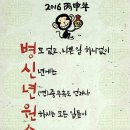 2016 丙申年
병도 없고, 나쁜 일 하나없이
신년에는
년(연)중무휴로 언제나
원하시는 모든 일들이
소